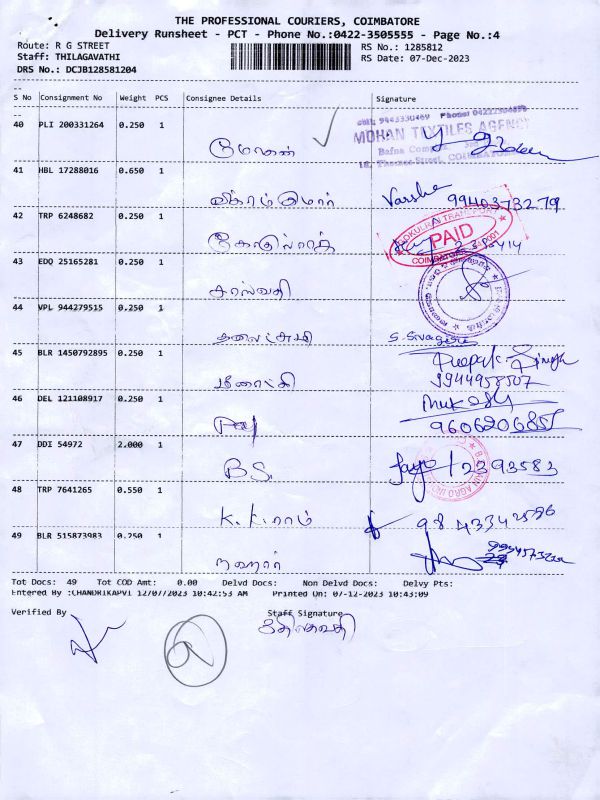 THE PROFESSIONAL COURIERS, COIMBATORE
Delivery Runsheet - PCT - Phone No.:0422-3505555 - Page No.:4
Route: R G STREET
RS No.: 1285812
Staff: THILAGAVATHI
RS Date: 07-Dec-2023
DRS No.: DCJB128581204
S No Consignment No Weight PCS Consignee Details Signature
40 PLI 200331264 0.250 1
மோகன்
MOHAN TEXTILES AGENCY
41 HBL 17288016 0.650 1
விக்ரம்குமார் Varsha 9940373279
42 TRP 6248682 0.250 1
கோகுல்ராஜ்
GOKULRAJ TRANSPORT
PAID
COIMBATORE
43 EDQ 25165281 0.250 1
சரஸ்வதி
44 VPL 944279515 0.250 1
S. Sivagami
45 BLR 1450792895 0.250 1
Deepak Singh
9944958507
46 DEL 121108917 0.250 1
Mukesh
9606206857
47 DDI 54972 2.000 1
B.S. 12393583
48 TRP 7641265 0.550 1
K.K.ராம் 9843342596
49 BLR 515873983 0.250 1
நஹார்
Tot Docs: 49 Tot COD Amt: 0.00 Delvd Docs: Non Delvd Docs: Delvy Pts:
Entered By :CHANDRIKAPVI 12/07/2023 10:42:53 AM Printed On: 07-12-2023 10:43:09
Verified By Staff Signature